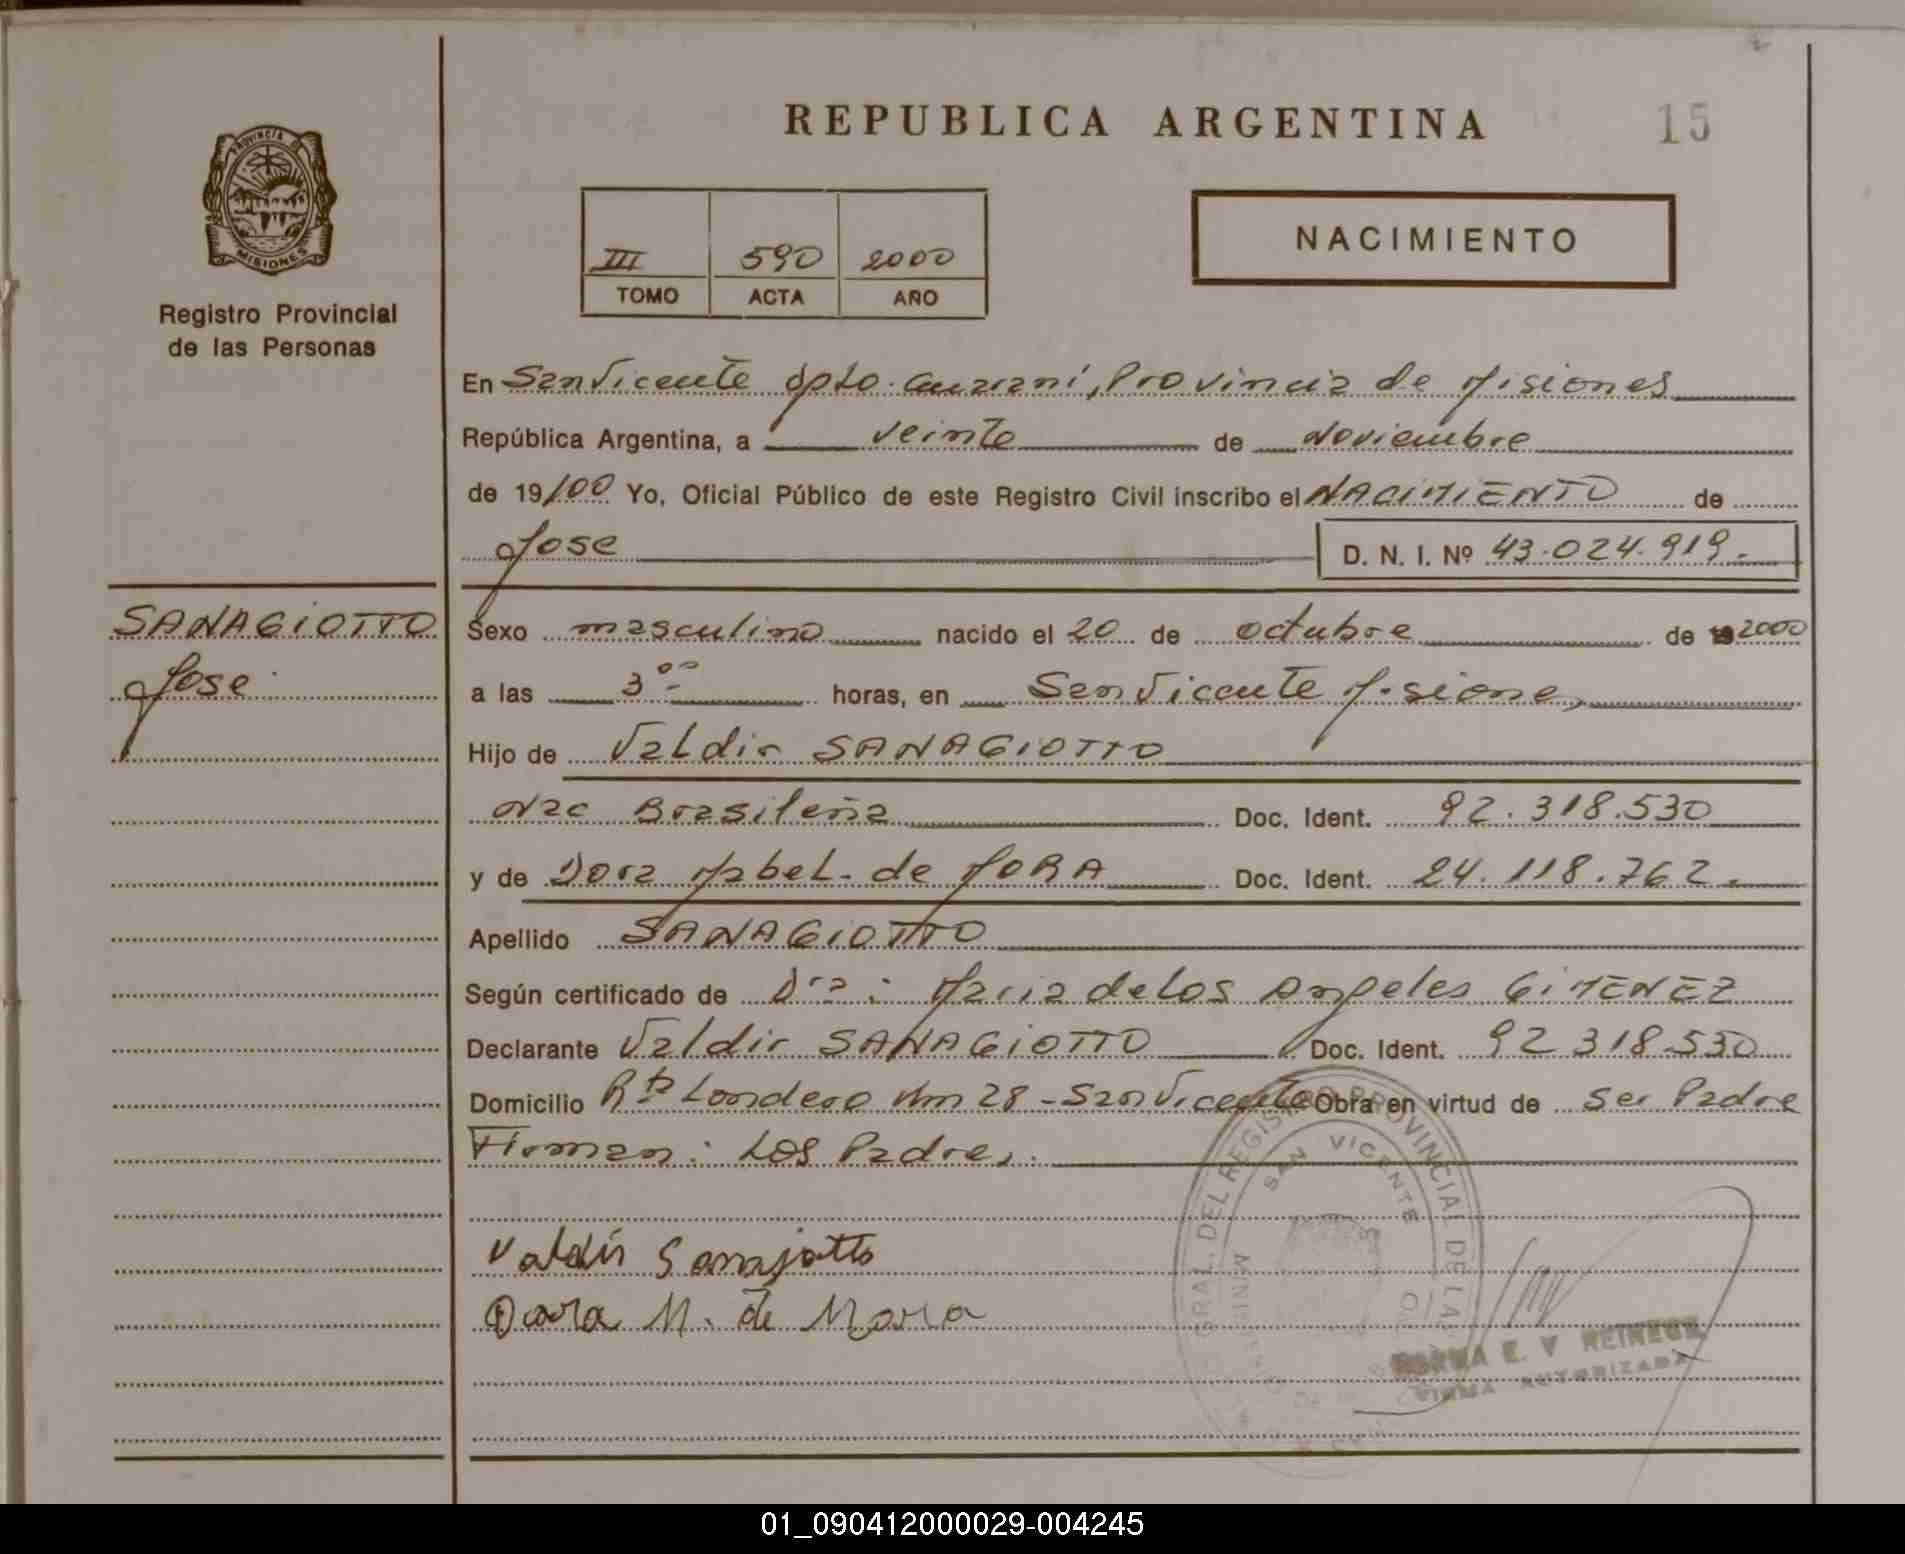 REPUBLICA ARGENTINA 15
PROVINCIA DE
MISIONES
Registro Provincial
de las Personas
NACIMIENTO
III 590 2000
TOMO ACTA AÑO
En San Vicente Dpto. Guarani, Provincia de Misiones
República Argentina, a veinte de Noviembre
de 19/00 Yo, Oficial Público de este Registro Civil inscribo el NACIMIENTO de
Jose D. N. I. Nº 43.024.919.-
SANAGIOTTO
Jose
Sexo masculino nacido el 20 de octubre de 2000
a las 3 00 horas, en San Vicente Misiones
Hijo de Valdir SANAGIOTTO
Nac Brasileña Doc. Ident. 92.318.530
y de Dora Mabel. de MORA Doc. Ident. 24.118.762.
Apellido SANAGIOTTO
Según certificado de Dra: Maria de Los Angeles GiMENEZ
Declarante Valdir SANAGIOTTO Doc. Ident. 92 318.530
Domicilio Rta Londero Km 28 - San Vicente Obra en virtud de Ser Padre
Firman: Los Padres.
Valdir Sanajotto
Dora M. de Mora
GRAL. DEL REGISTRO PROVINCIAL DE LAS
SAN VICENTE
NORMA E. V REINECK
FIRMA AUTORIZADA
01_090412000029-004245